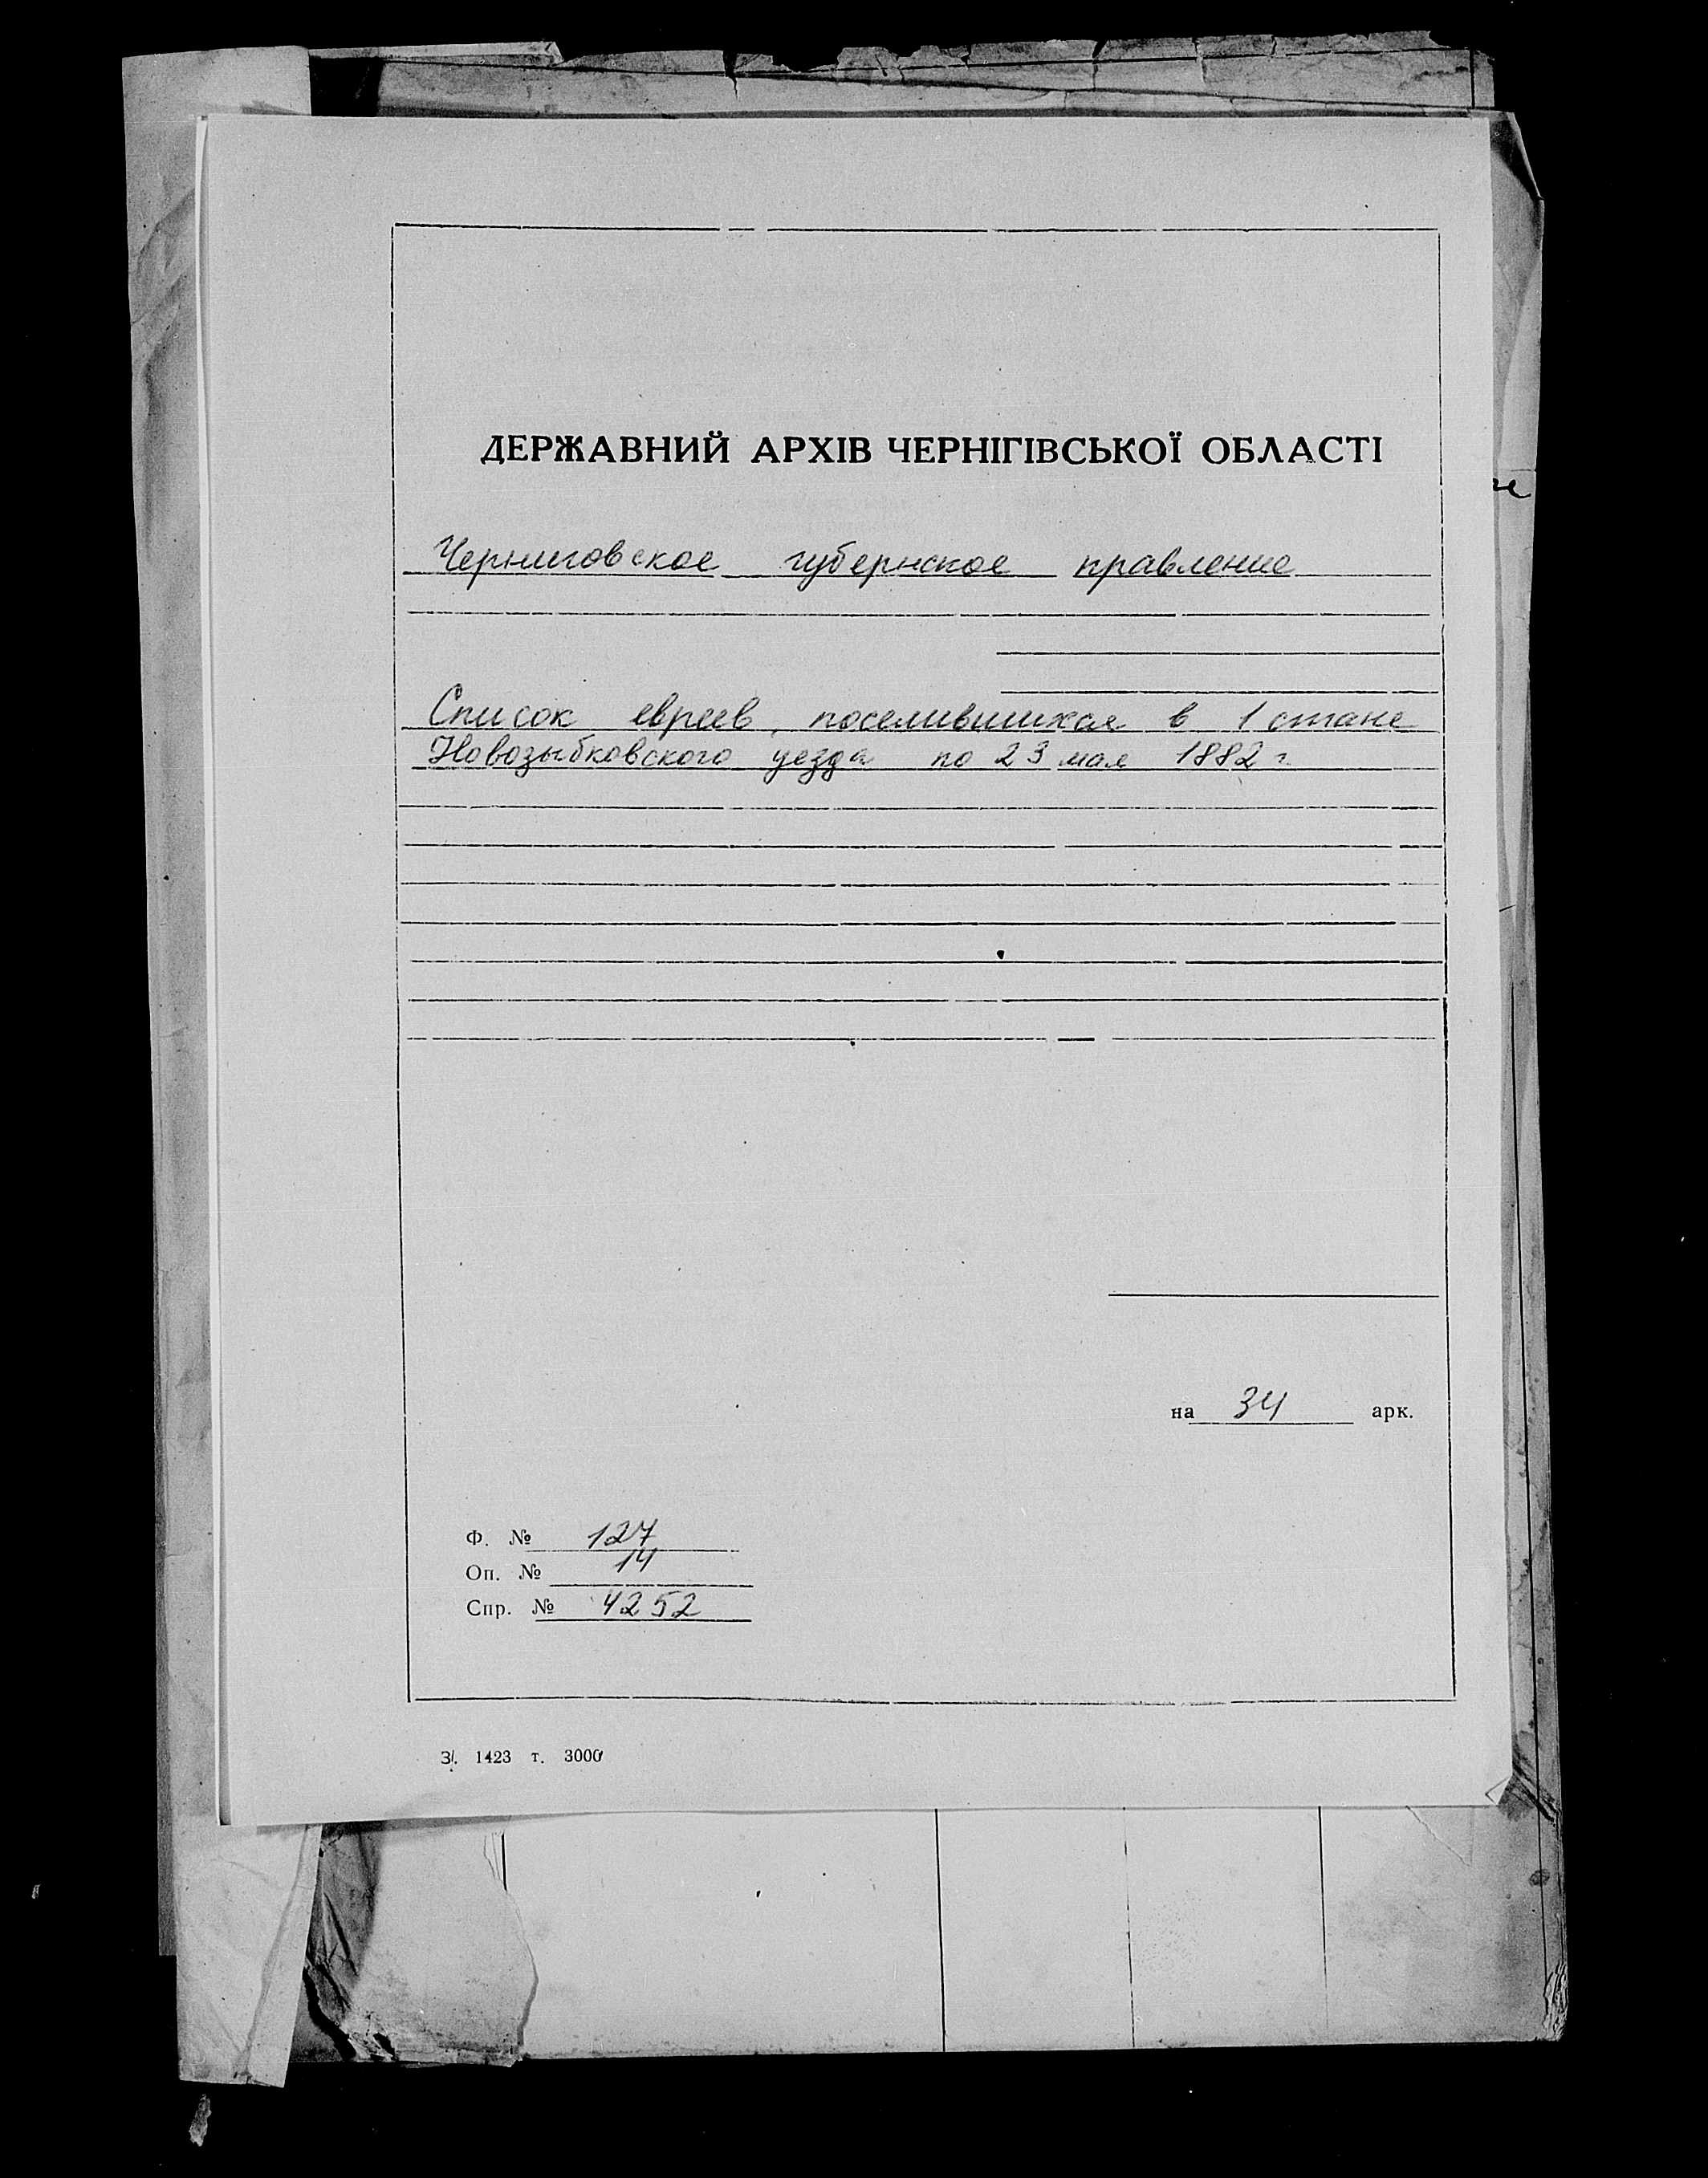 ДЕРЖАВНИЙ АРХІВ ЧЕРНІГІВСЬКОЇ ОБЛАСТІ
Черниговское губернское правление
Список евреев, поселившихся в 1 стане
Новозыбковского уезда по 23 мая 1882 г.
на 34 арк.
Ф. № 127
Оп. № 14
Спр. № 4252
З. 1423 т. 3000